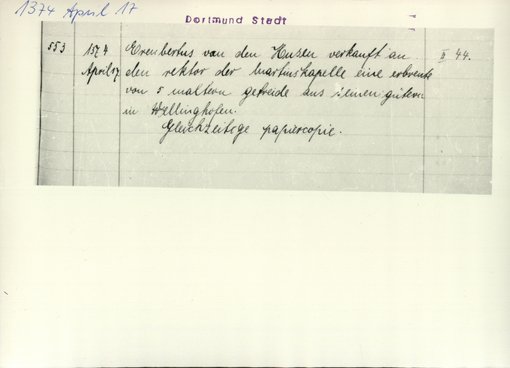 1374 April 17
Dortmund Stadt
553 1374 Erenbertus van den Husen verkauft an II 44.
April 17 den rektor der martinskapelle eine erbrente
von 5 maltern getreide aus seinen gütern
in Wellinghofen.
Gleichzeitige papiercopie.